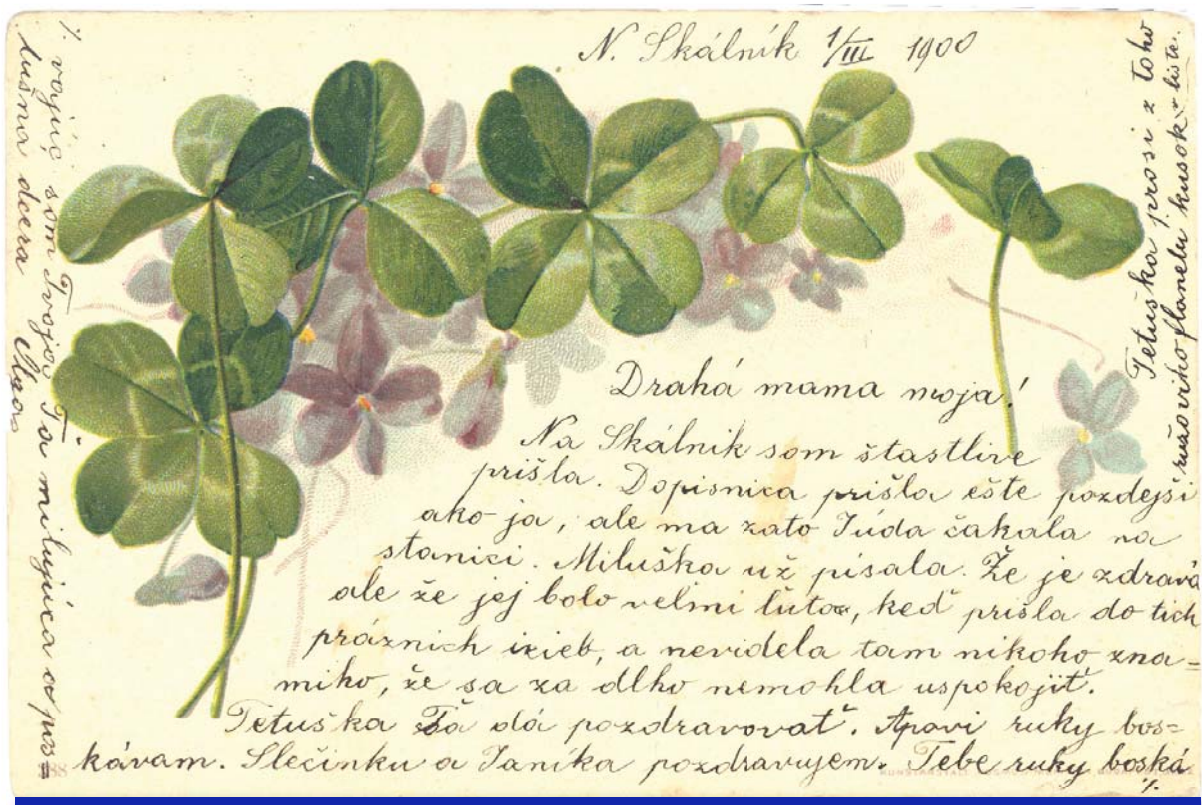 N. Skálnik 1/III 1900
Drahá mama moja!
Na Skálnik som štastlive
prišla. Dopisnica prišla ešte pozdejši
ako ja, ale ma zato Júda čakala na
stanici. Miluška už písala. Že je zdravá
ale že jej bolo velmi luto, keď prišla do tich
práznich izieb, a nevidela tam nikoho zna=
miho, že sa za dlho nemohla uspokojiť.
Tetuška Ťa dá pozdravovať. Apovi ruky bos=
kávam. Slečinku a Janíka pozdravujem. Tebe ruky boská
·/.
·/. vajúc som Tvoja Ťa milujúca a pos=
lušna dcera
Tetuška prosi z toho
ružoviho flanelu kusok v liste.